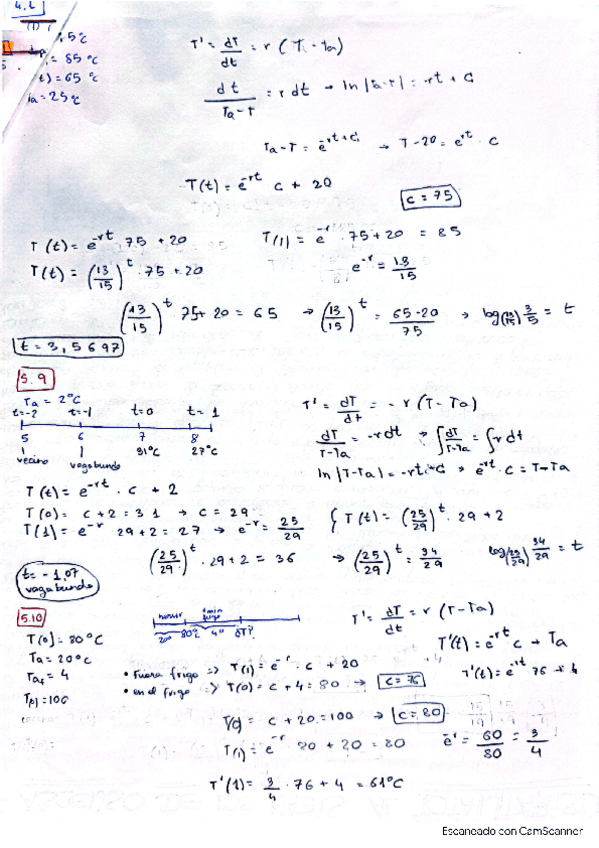 5 ºC
= 85 ºC
t) = 65 ºC
Ta = 25 ºC
T' = dT/dt = r (T - Ta)
dt/(Ta-T) = r dt → ln |Ta-T| = -rt + C
Ta-T = e^(-rt+C) → T-20 = e^(-rt) · C
T(t) = e^(-rt) C + 20
C = 75
T(t) = e^(-rt) 75 + 20
T(1) = e^(-r) · 75 + 20 = 85
T(t) = (13/15)^t · 75 + 20
e^(-r) = 13/15
(13/15)^t 75 + 20 = 65 → (13/15)^t = (65-20)/75 → log(13/15) 3/5 = t
t = 3,5697
5.9
Ta = 2ºC
t=-2 t=-1 t=0 t=1
5 6 7 8
vecino vagabundo 31ºC 27ºC
T' = dT/dt = - r (T - Ta)
dT/(T-Ta) = -r dt → ∫ dT/(T-Ta) = ∫ -r dt
ln |T-Ta| = -rt + C → e^(-rt) · C = T - Ta
T(t) = e^(-rt) · C + 2
T(0) = C + 2 = 31 → C = 29
T(1) = e^(-r) 29 + 2 = 27 → e^(-r) = 25/29
{ T(t) = (25/29)^t · 29 + 2
(25/29)^t · 29 + 2 = 36 → (25/29)^t = 34/29 log(25/29) 34/29 = t
t = -1,07
vagabundo
5.10
T(0) = 80ºC
Ta = 20ºC
Ta₁ = 4
T(0) = 100
1 min
frigo
T' = dT/dt = r (T - Ta)
T'(t) = e^(-rt) C + Ta
• Fuera frigo => T(1) = e^(-r) · C + 20
T'(t) = e^(-rt) 76 + 4
• en el frigo => T(0) = C + 4 = 80 → C = 76
T(0) = C + 20 = 100 → C = 80
T(1) = e^(-r) 80 + 20 = 80
e^(-r) = 60/80 = 3/4
T'(1) = 3/4 · 76 + 4 = 61ºC
Escaneado con CamScanner